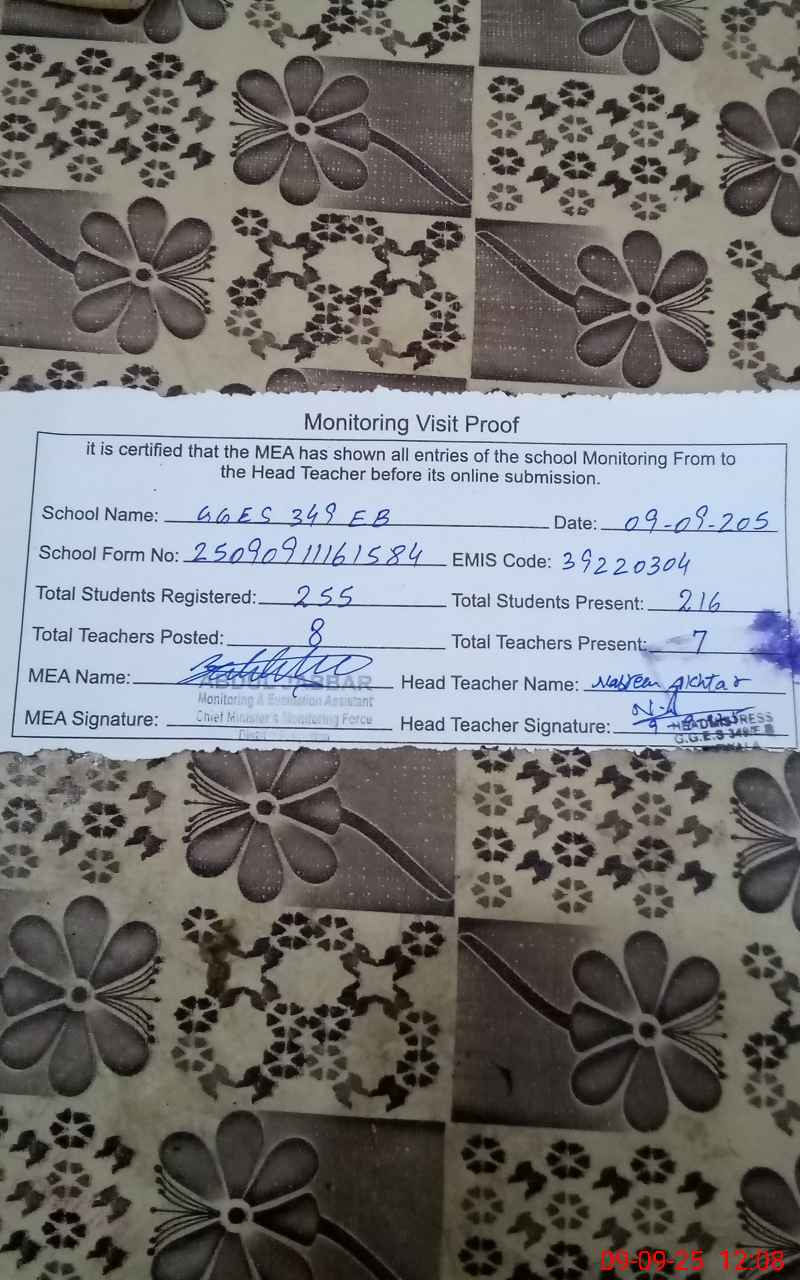 Monitoring Visit Proof
it is certified that the MEA has shown all entries of the school Monitoring From to
the Head Teacher before its online submission.
School Name: GGES 349 EB Date: 09-09-205
School Form No: 25090911161584 EMIS Code: 39220304
Total Students Registered: 255 Total Students Present: 216
Total Teachers Posted: 8 Total Teachers Present: 7
MEA Name: ABDUL JABBAR Head Teacher Name: Nasreen Akhtar
Monitoring & Evaluation Assistant
MEA Signature: Chief Minister's Monitoring Force Head Teacher Signature: N.A
HEADMISTRESS
G.G.E.S 349/E.B
09-09-25 12:08